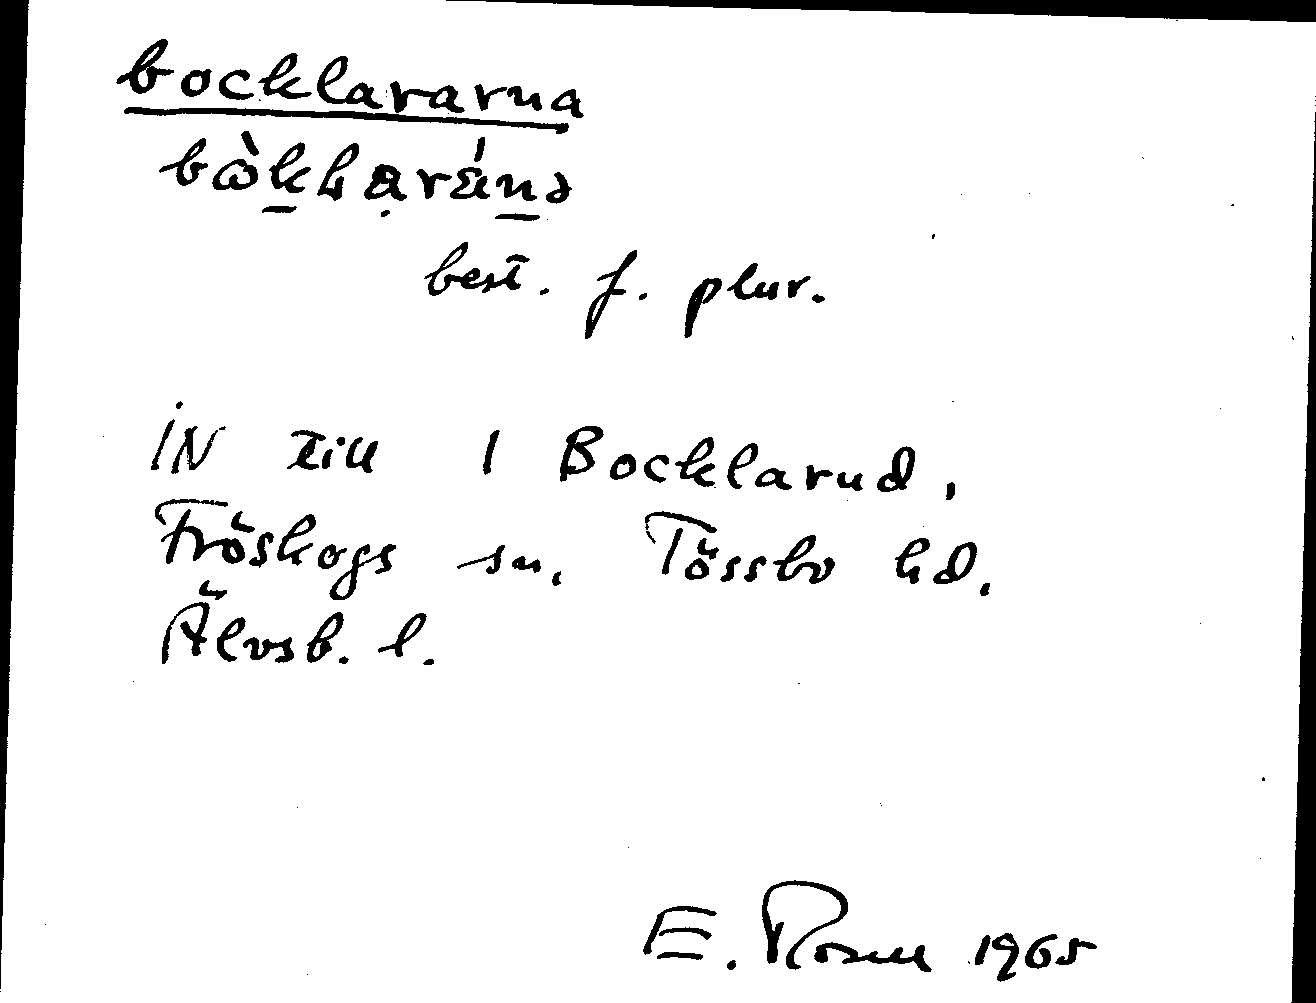 bocklararna
bὼkLạrάnə
best. f. plur.
IN till 1 Bocklarud,
Fröskogs sn. Tössbo hd.
Älvsb. l.
E. Rosell 1965